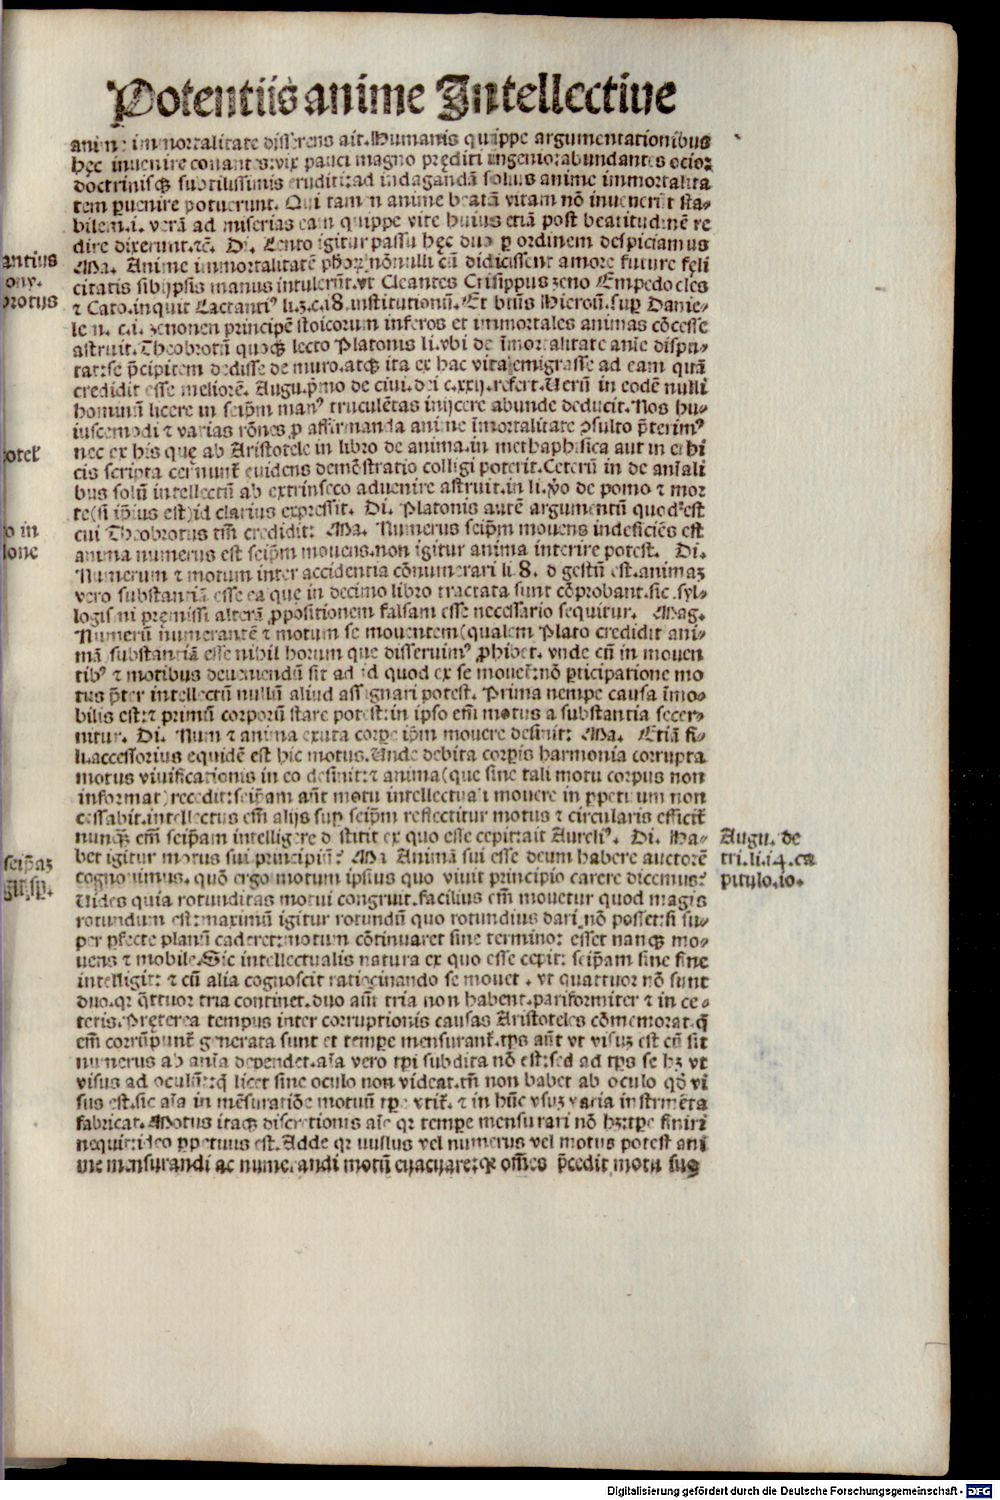 Potentiis anime Intellectiue
anime immortalitate disserens ait. Humanis quippe argumentationibus
hęc inuenire conantes: vix pauci magno pręditi ingenio: abundantes ocio:
doctrinisqꝫ subtilissimis eruditi: ad indagandā solius anime immortalita
tem ꝑuenire potuerunt. Qui tamen anime beatā vitam nō inuenerūt sta⸗
bilem .i. verā ad miserias eam quippe vite huius etiā post beatitudinē re
dire dixerunt. ⁊c̄. Di. Lento igitur passu hęc duo ꝑ ordinem despiciamus
Ma. Anime immortalitatē ph̄oꝝ nōnulli cū didicissent amore future fęli
citatis sibijpsis manus intulerūt. vt Cleantes Crisippus zeno Empedocles
⁊ Cato. inquit Lactantiꝰ li. 3. c. 18. institutionū. Et btūs Hieroū. suꝑ Danie⸗
le n. c. i. zenonen principē stoicorum inferos et immortales animas cōcesse
astruit. Theobrotū quoqꝫ lecto Platonis li. vbi de īmortalitate anīe dispu⸗
tat: se p̄cipitem dedisse de muro. atqꝫ ita ex hac vita emigrasse ad eam quā
credidit esse meliorē. Augu. p̄mo de ciui. dei c. xxij. refert. Uerū in eodē nulli
hominū licere in seip̄m manꝰ truculētas inijcere abunde deducit. Nos hu⸗
iuscemodi ⁊ varias rōnes ꝓ affirmanda anime īmortalitate ↄsulto p̄terimꝰ
nec ex his que ab Aristotele in libro de anima. in methaphisica aut in ethi
cis scripta cernunt̄ euidens demōstratio colligi poterit. Ceterū in de anīali
bus solū intellectū ab extrinseco aduenire astruit. in li. v̊o de pomo ⁊ mor
te (si ip̄ius est) id clarius expressit. Di. Platonis autē argumentū quod est
cui Theobrotus tm̄ credidit: Ma. Numerus seip̄m mouens indeficiēs est
anima numerus est seip̄m mouens. non igitur anima interire potest. Di.
Numerum ⁊ motum inter accidentia cōnumerari li. 8. digestū est. animaꝫ
vero substantiā esse ea que in decimo libro tractata sunt cōprobant. sic syl⸗
logismi pręmissi alterā ꝓpositionem falsam esse necessario sequitur. Mag.
Numerū numerantē ⁊ motum se mouentem (qualem Plato credidit ani⸗
mā) substantiā esse nihil horum que disseruimꝰ ꝓhibet. vnde cū in mouen
tibꝰ ⁊ motibus deueniendū sit ad id quod ex se mouet̄: nō ꝑticipatione mo
tus p̄ter intellectū nullū aliud assignari potest. Prima nempe causa īmo⸗
bilis est: ⁊ primū corporū stare potest: in ipso em̄ motus a substantia secer⸗
nitur. Di. Num ⁊ anima exuta corꝑe ip̄m mouere desinit: Ma. Etiā fi⸗
li. accessorius equidē est hic motus. Unde debita corꝑis harmonia corrupta
motus viuificationis in eo desinit: ⁊ anima (que sine tali motu corpus non
informat) recedit: seip̄am aūt motu intellectuali mouere in ꝑpetuum non
cessabit. intellectus em̄ alijs suꝑ seip̄m reflectitur motus ⁊ circularis efficit̄
nunqꝫ em̄ seip̄am intelligere destitit ex quo esse cepit: ait Aureliꝰ. Di. Ha⸗
bet igitur motus sui principiū? Ma Animā sui esse deum habere auctorē
cognouimus. quō ergo motum ipsius quo viuit principio carere dicemus?
Uides quia rotunditas motui congruit. facilius em̄ mouetur quod magis
rotundum est: maximū igitur rotundū quo rotundius dari nō posset: si su⸗
per ꝑfecte planū caderet: motum cōtinuaret sine termino: esset nanqꝫ mo⸗
uens ⁊ mobile. Sic intellectualis natura ex quo esse cepit: seip̄am sine fine
intelligit: ⁊ cū alia cognoscit ratiocinando se mouet. vt quattuor nō sunt
duo. qꝛ q̄ttuor tria continet. duo aūt tria non habent. pariformiter ⁊ in ce⸗
teris. Pręterea tempus inter corruptionis causas Aristoteles cōmemorat. q̄
em̄ corrūpunt̄ generata sunt et tempe mensurant̄. tp̄s aūt vt visuꝫ est cū sit
numerus ab anīa dependet. aīa vero tp̄i subdita nō est: sed ad tp̄s se hꝫ vt
visus ad oculū: q̄ licet sine oculo non videat. tn̄ non habet ab oculo qd̄ vi
sus est. sic aīa in mēsuratiōe motuū tp̄e vtit̄. ⁊ in hūc vsuꝫ varia instrmēta
fabricat. Motus itaqꝫ discretionis aīe qꝛ tempe mensurari nō hꝫ: tp̄e finiri
nequit: ideo ꝑpetuus est. Adde qꝛ nullus vel numerus vel motus potest ani
me mensurandi ac numerandi motū euacuare: qꝛ omēs p̄cedit motu suo
antius
protus
otel̄
o in
ione
seip̄aꝫ
Augu. de
tri. li. i4. ca
pitulo. io.
Digitalisierung gefördert durch die Deutsche Forschungsgemeinschaft - DFG